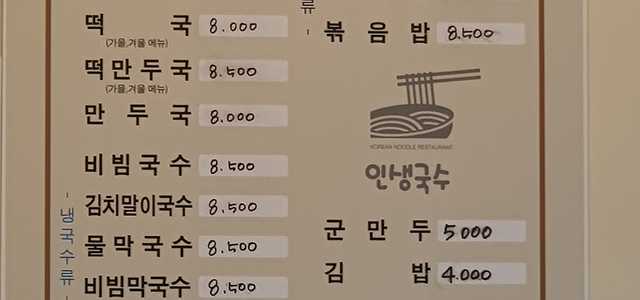 떡국 8.000
(가을,겨울 메뉴)
떡만두국 8.500
(가을,겨울 메뉴)
만두국 8.000
비빔국수 8.500
김치말이국수 8.500
물막국수 8.500
비빔막국수 8.500
- 냉국수류 -
류 -
볶음밥 8.500
KOREAN NOODLE RESTAURANT
인생국수
군만두 5000
김밥 4.000